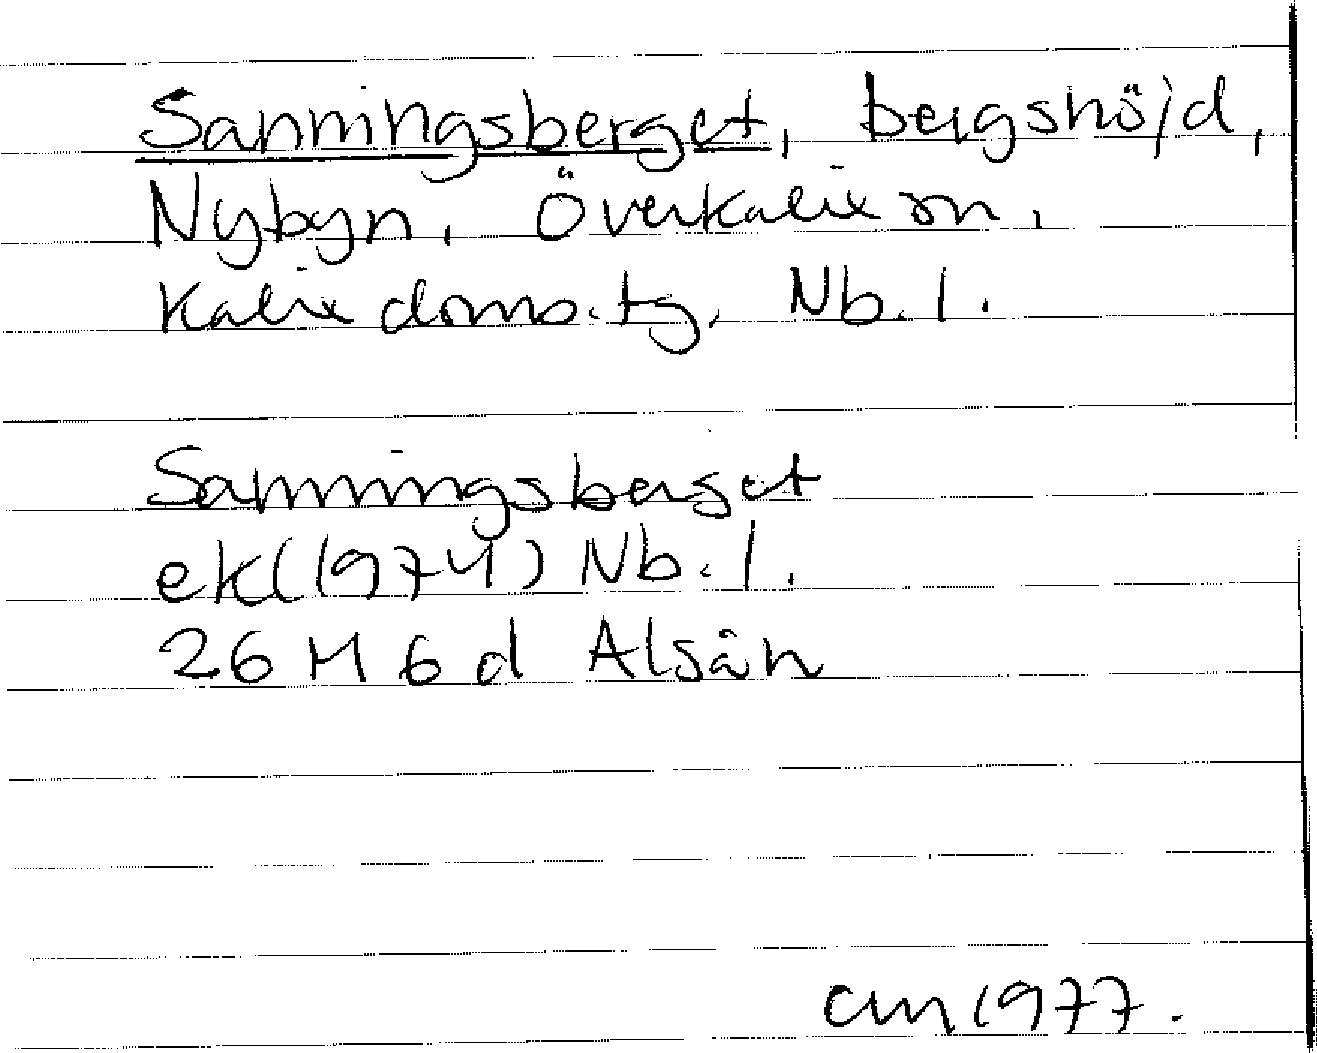 Sanningsberget, bergshöjd,
Nybyn, Överkalix sn,
Kalix doms.tg, Nb.l.
Sanningsberget
ek(1974) Nb.l.
26 M 6 d Alsån
cm 1977.